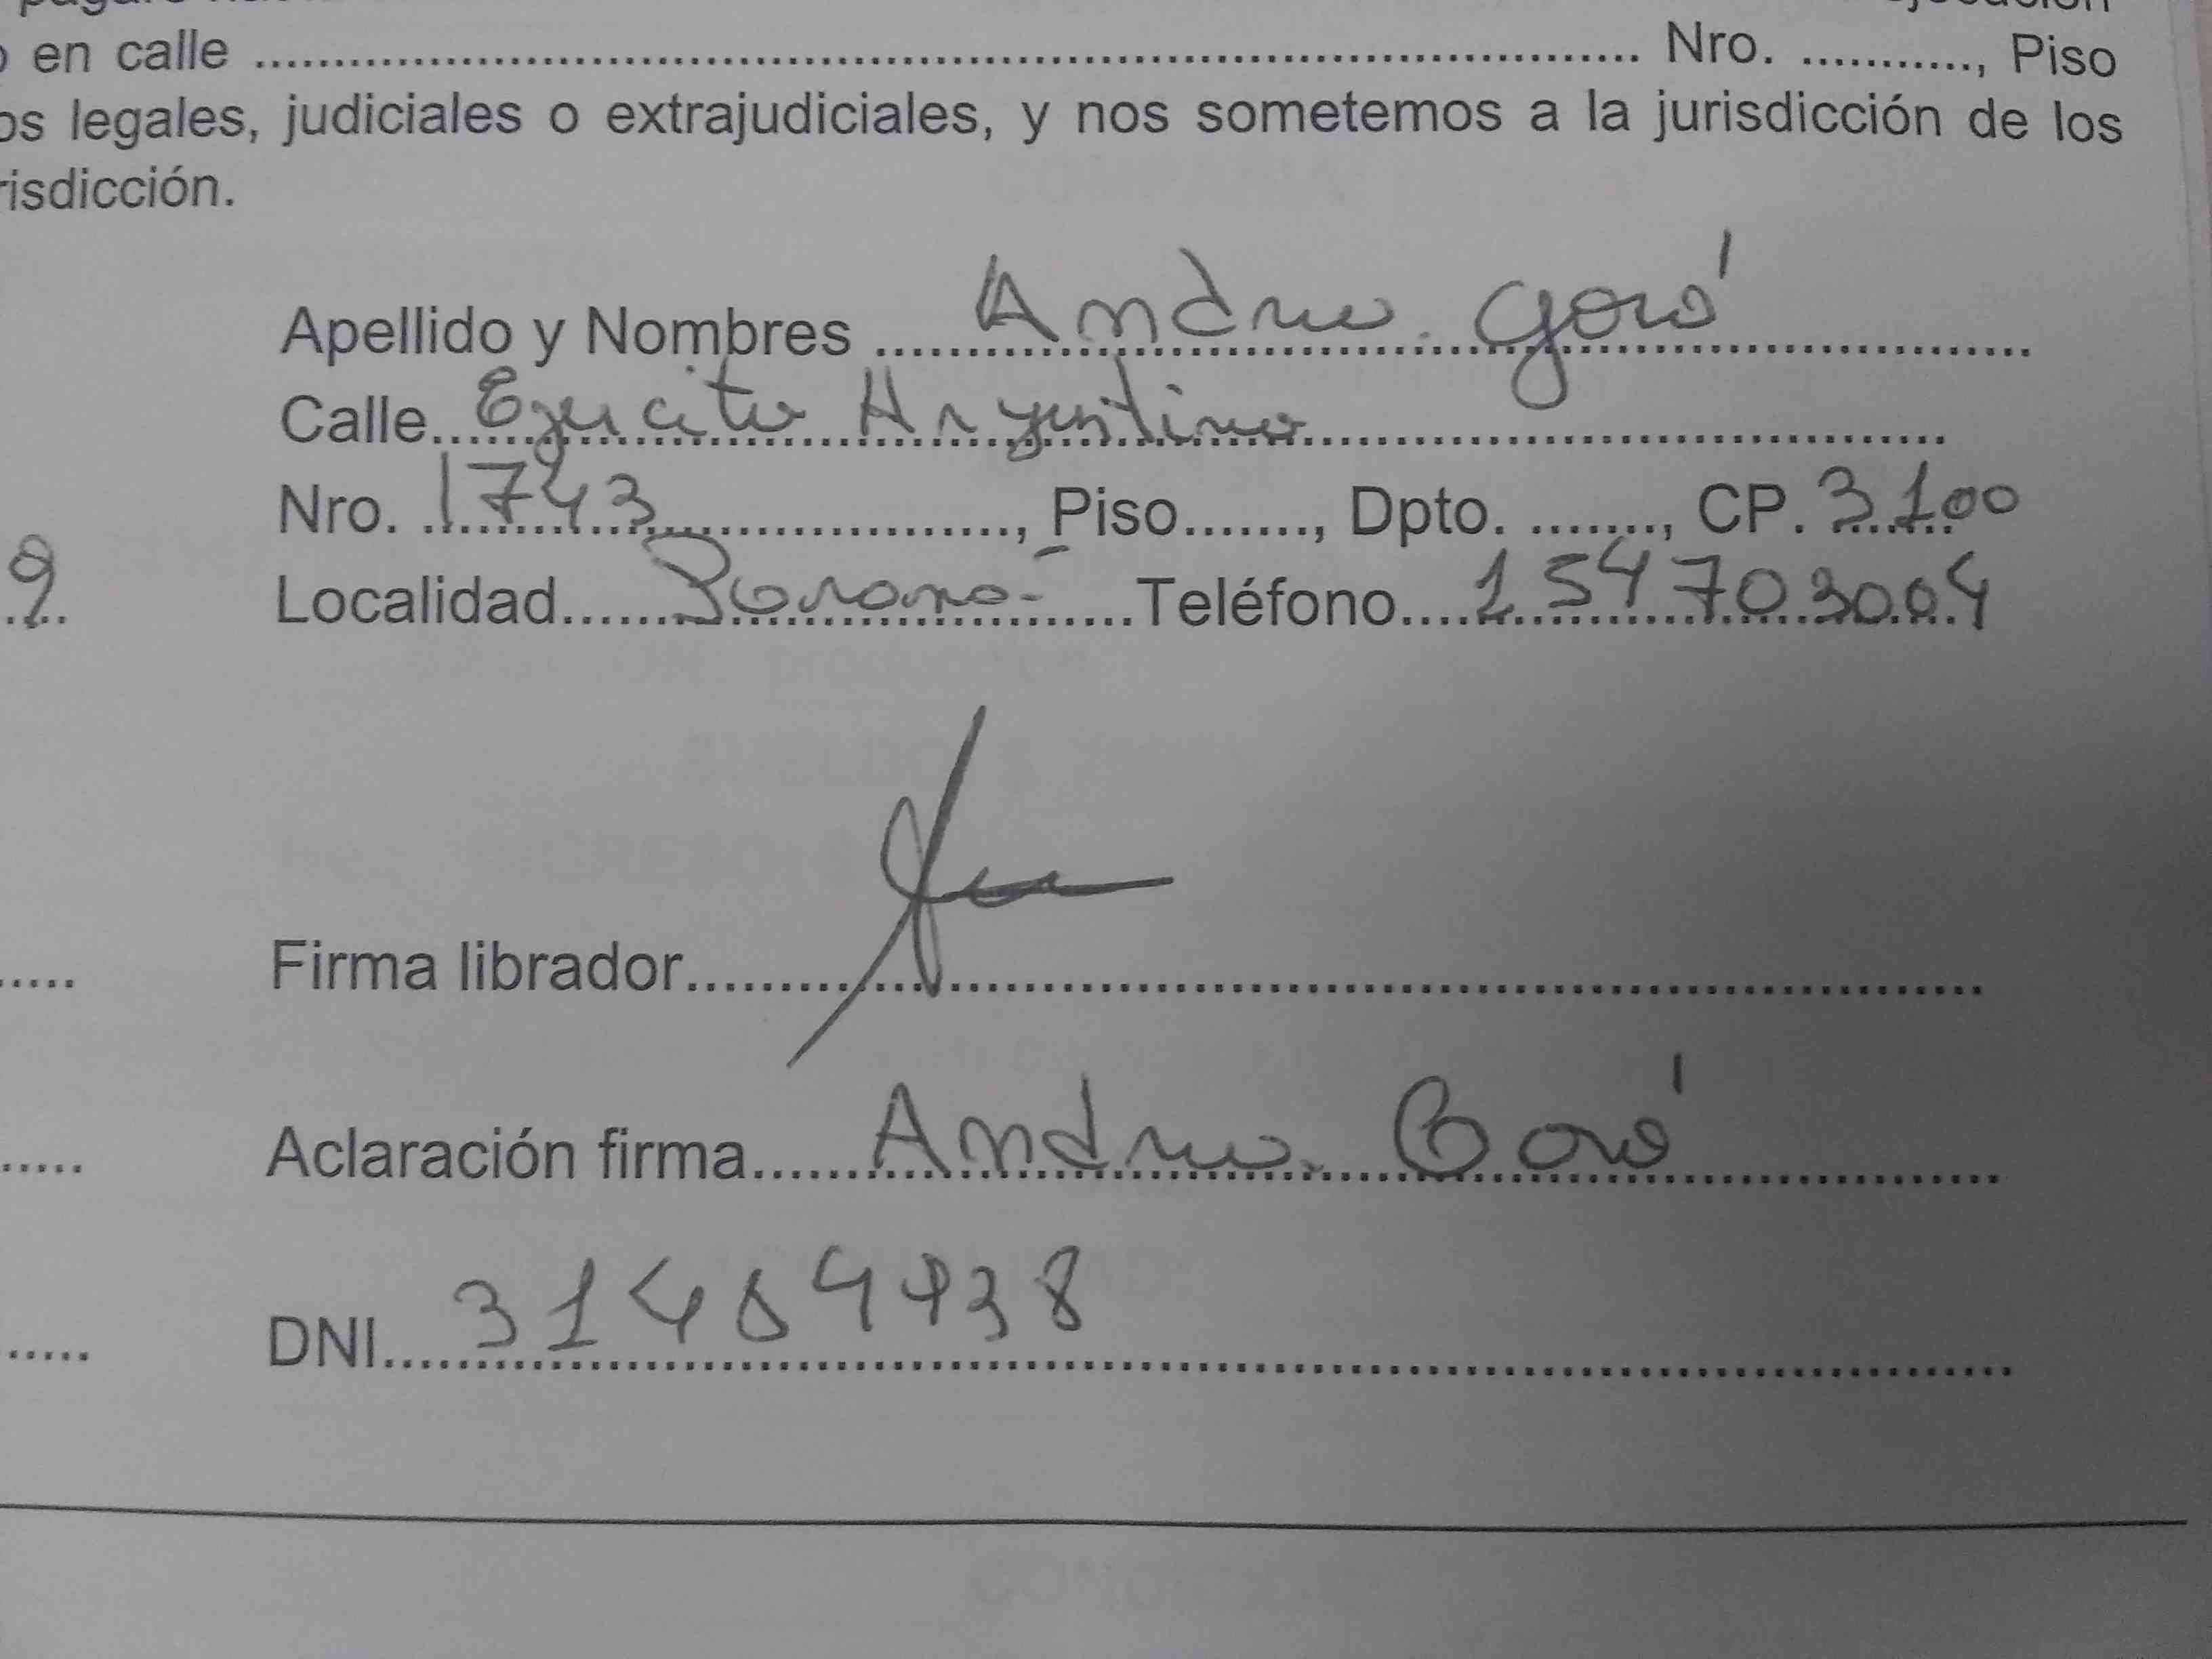 en calle .......... Nro. .........., Piso
os legales, judiciales o extrajudiciales, y nos sometemos a la jurisdicción de los
risdicción.
Apellido y Nombres ..........
Calle.... Ejercito Argentino ..........
Nro. 1743 .........., Piso......., Dpto. ......., CP. 3100
9 Localidad...... Paraná ......Teléfono.... 154703004
Firma librador..........
Aclaración firma..........
DNI...